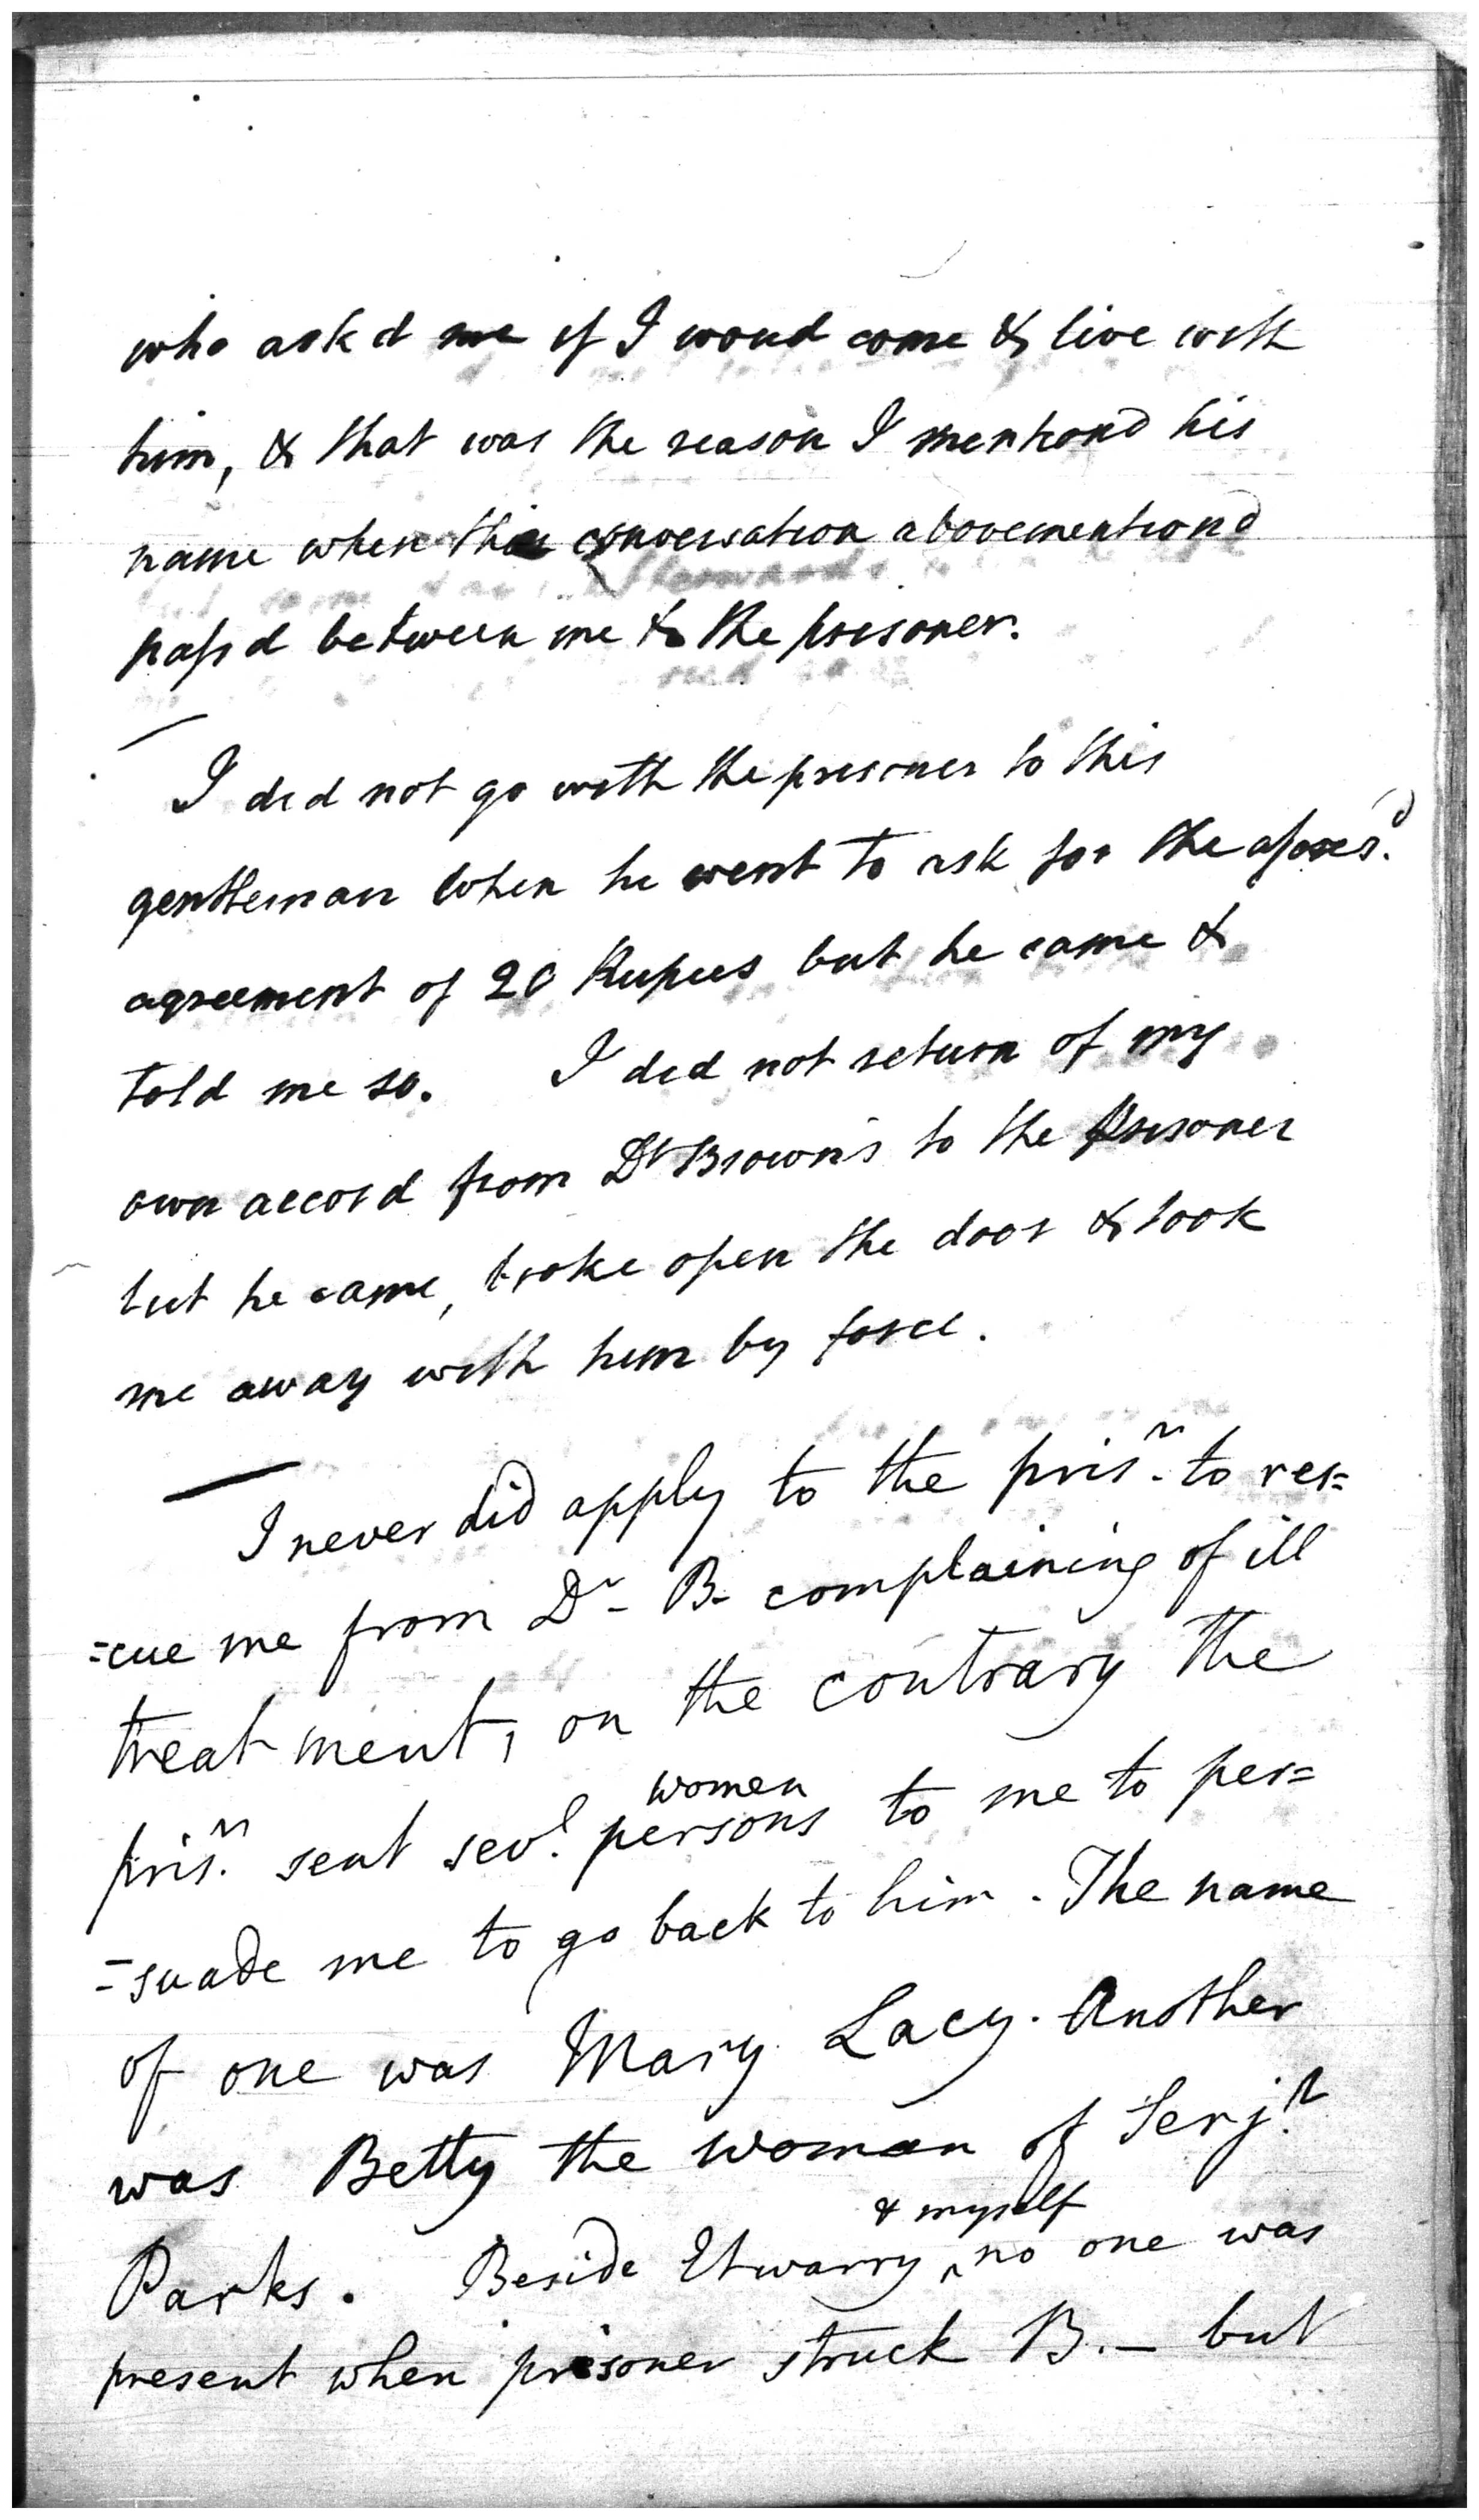 who ask'd me if I woud come & live with
him, & that was the reason I mention'd his
name when the conversation abovemention'd
pass'd between me & the prisoner.
I did not go with the prisoner to this
gentleman when he went to ask for the afores.d
agreement of 20 Rupees but he came &
told me so. I did not return of my
own accord from Dr Brown's to the Prisoner
but he came, broke open the door & took
me away with him by force.
I never did apply to the pris.r to res=
=cue me from Dr. B. complaining of ill
treatment, on the contrary the
women
pris.r sent sev.l persons to me to per=
=suade me to go back to him. The name
of one was Mary Lacy. Another
was Betty the woman of Serj.t
& myself
Parks. Beside Etwarry ^ no one was
present when prisoner struck B. — but